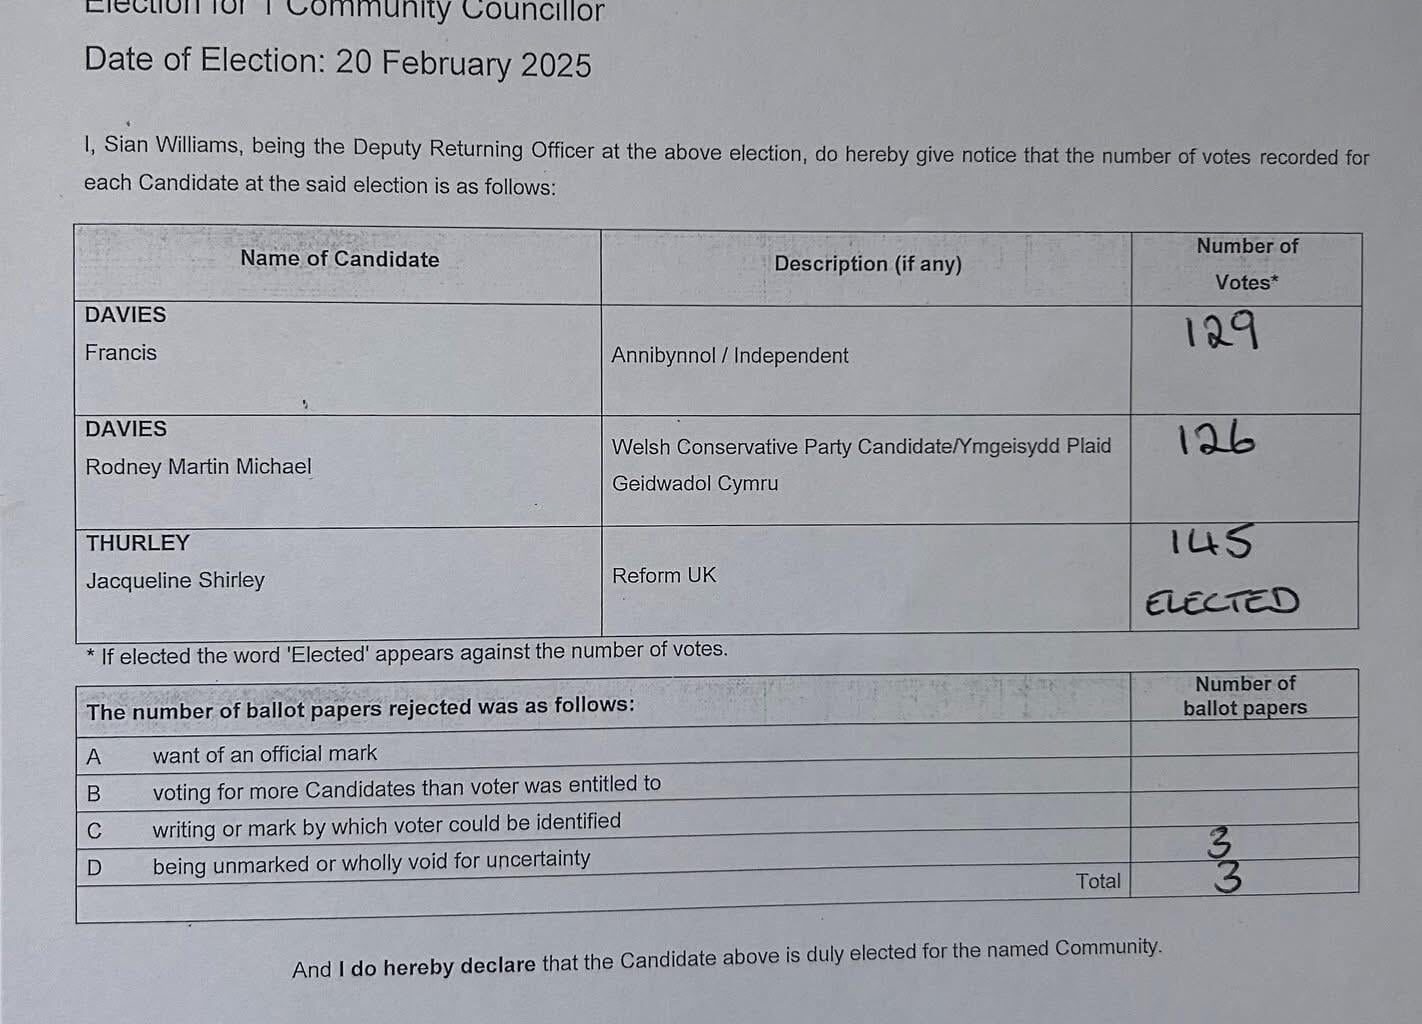 Election for 1 Community Councillor
Date of Election: 20 February 2025
I, Sian Williams, being the Deputy Returning Officer at the above election, do hereby give notice that the number of votes recorded for
each Candidate at the said election is as follows:
Name of Candidate
Description (if any)
Number of
Votes*
DAVIES
Francis
Annibynnol / Independent
129
DAVIES
Rodney Martin Michael
Welsh Conservative Party Candidate/Ymgeisydd Plaid
Geidwadol Cymru
126
THURLEY
Jacqueline Shirley
Reform UK
145
ELECTED
* If elected the word 'Elected' appears against the number of votes.
The number of ballot papers rejected was as follows:
Number of
ballot papers
A want of an official mark
B voting for more Candidates than voter was entitled to
C writing or mark by which voter could be identified
D being unmarked or wholly void for uncertainty 3
Total 3
And I do hereby declare that the Candidate above is duly elected for the named Community.